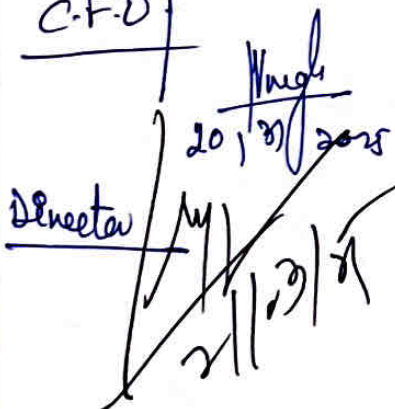 C.F.O
20/3/2025
Director
21/3/25